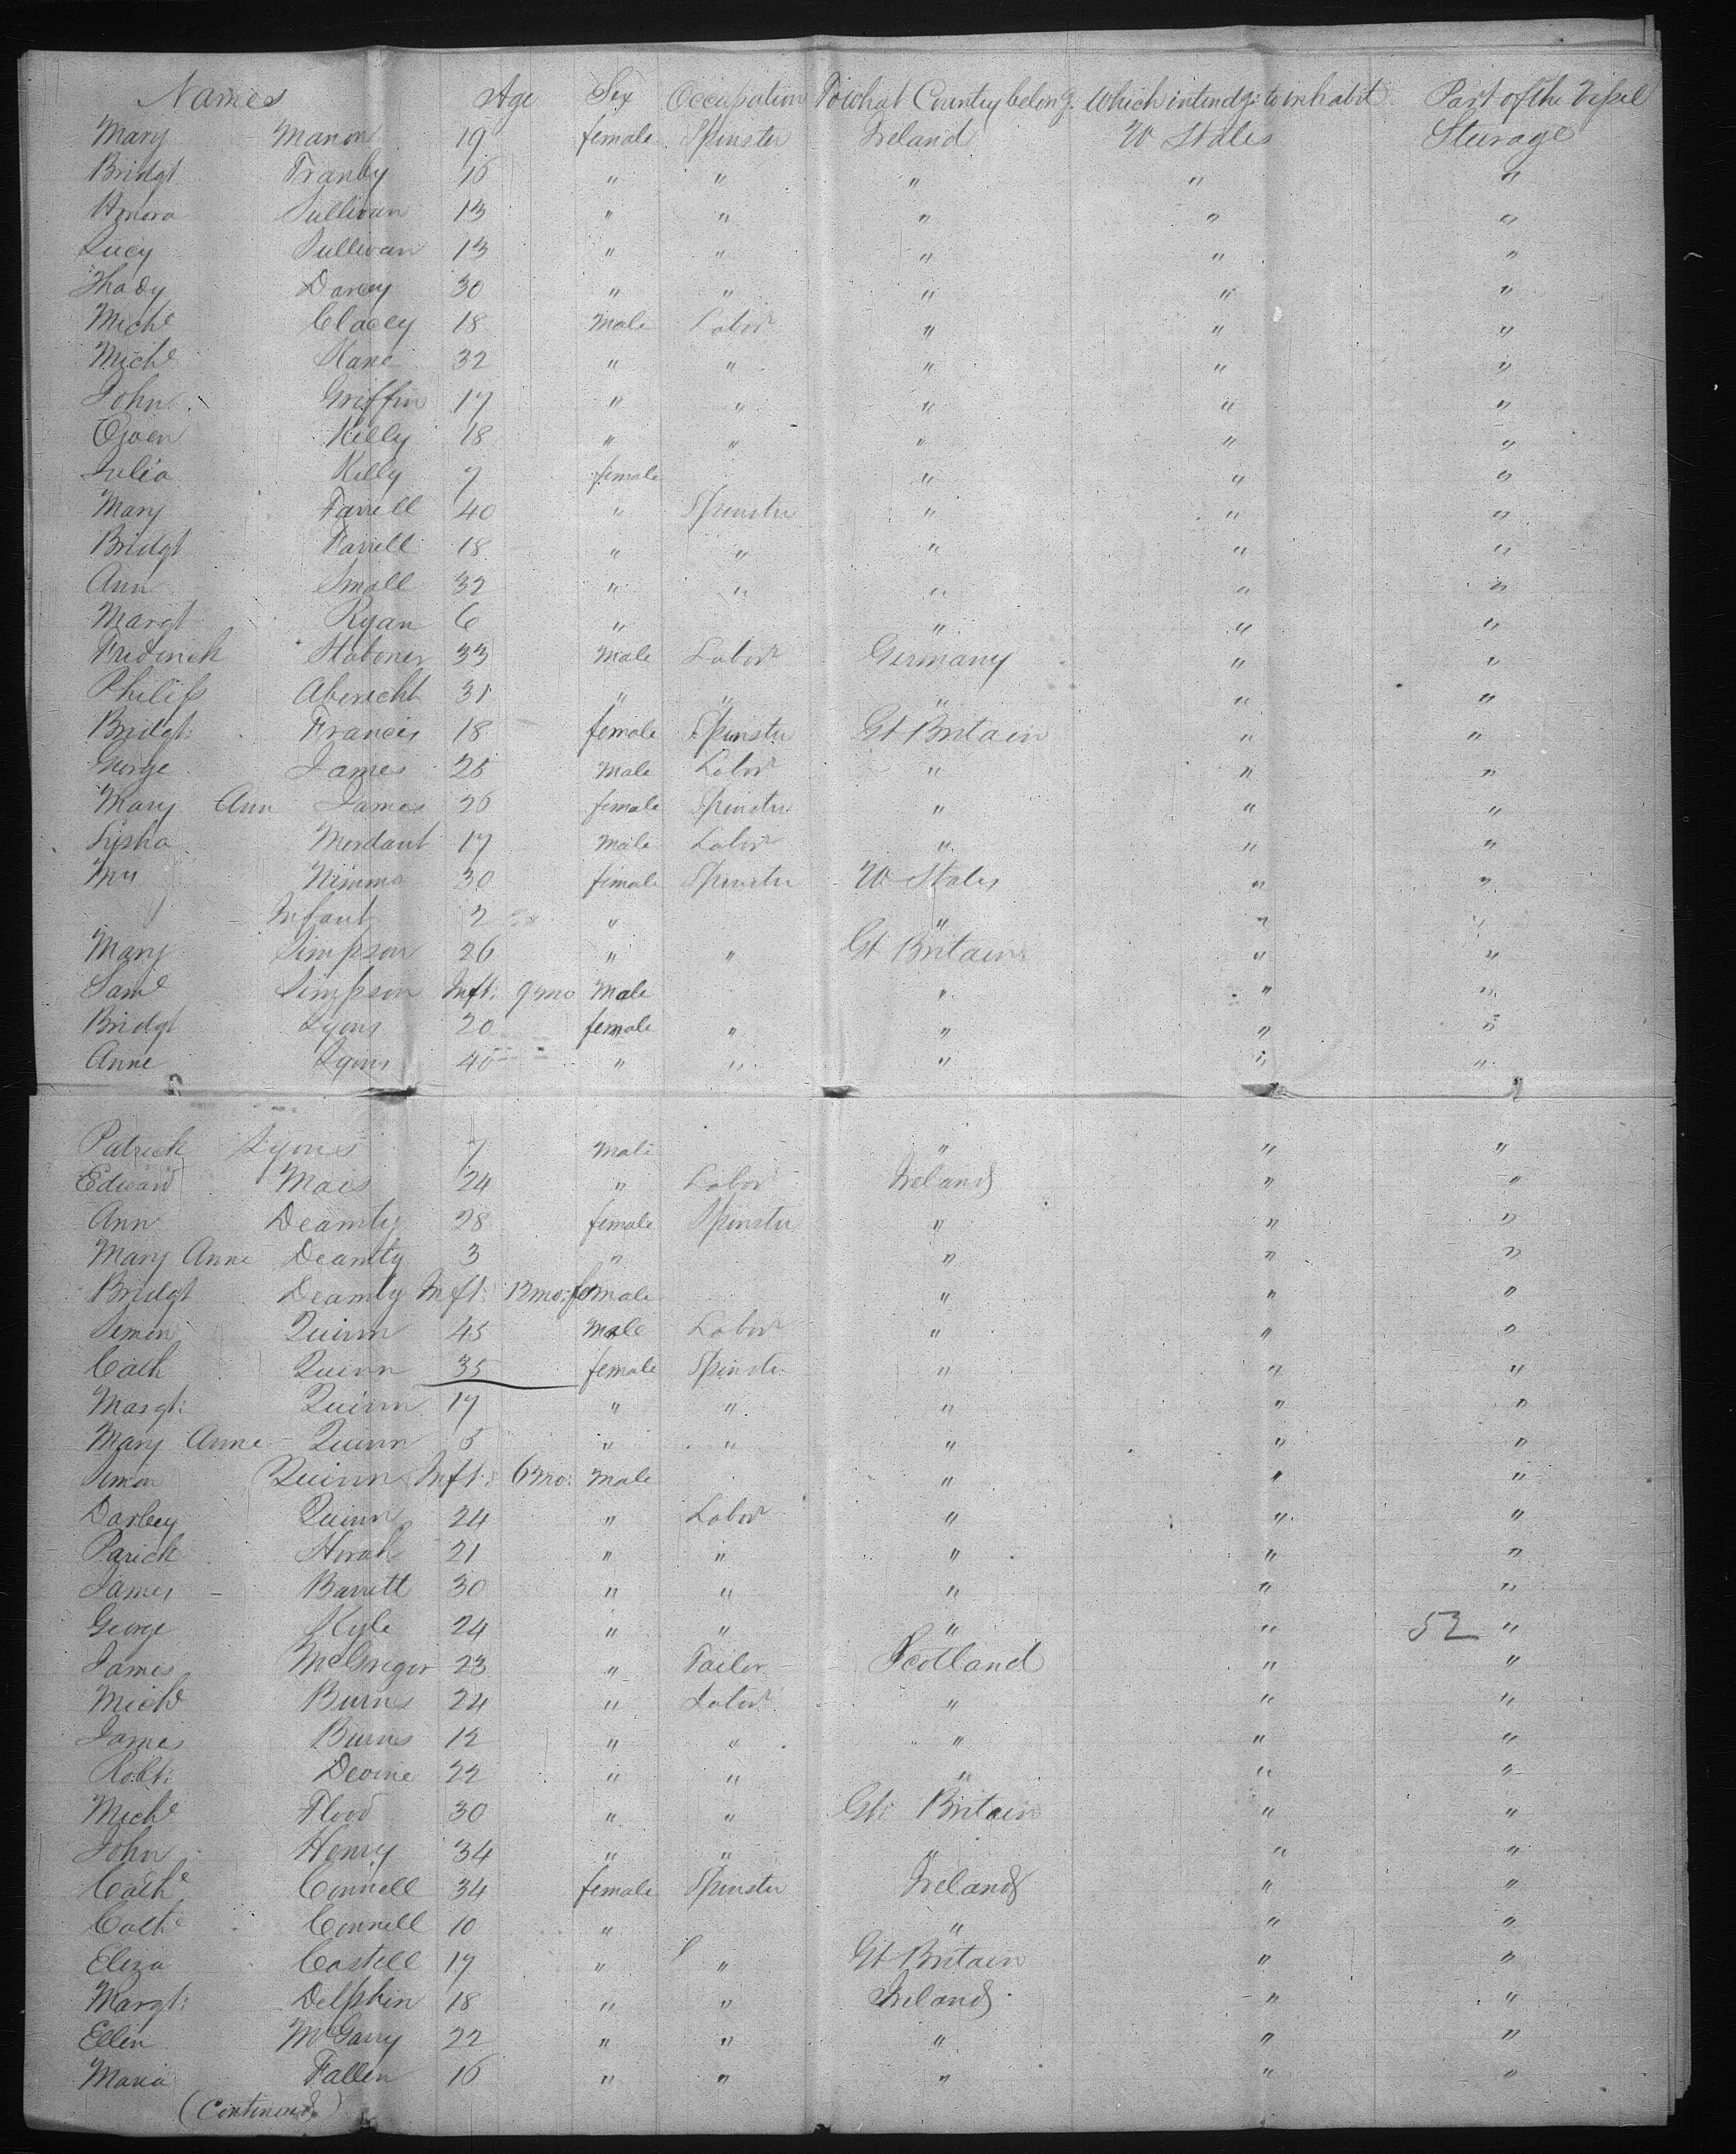 Names Age Sex Occupation To what Country belong: Which intendg: to inhabit Part of the Vessel
Mary Manon 19 female Spinster Ireland U States Steerage
Bridgt Franby 16 " " " " "
Honora Sullivan 13 " " " " "
Lucy Sullivan 13 " " " " "
Thady Darcey 30 " " " " "
Michl Clacey 18 Male Labor " " "
Michl Kane 32 " " " " "
John Griffin 17 " " " " "
Owen Killy 18 " " " " "
Julia Killy 7 female " " "
Mary Farrell 40 " Spinster " " "
Bridgt Farrell 18 " " " " "
Ann Small 32 " " " " "
Margt Ryan 6 " " " "
Frederick 33 Male Labor Germany " "
Philip Abericht 31 " " " " "
Bridgt: Francis 18 female Spinster Gt Britain " "
George James 25 Male Labor " " "
Mary Ann James 26 female Spinster " " "
Merdant 17 Male Labor " " "
Mrs Nimmo 30 female Spinster U States " "
Infant 2 " " " "
Mary Simpson 26 " " Gt Britain " "
Saml Simpson Inft: 9 mo Male " " "
Bridgt Lyons 20 female " " " "
Anne Lyons 40 " " " " "
Patrick Lyons 7 Male " " "
Edward Mais 24 " Labor Ireland " "
Ann Deamty 28 female Spinster " " "
Mary Anne Deamty 3 " " " "
Bridgt Deamty Inft: 12 mo: female " " "
Simon Quinn 45 Male Labor " " "
Cath Quinn 35 female Spinster " " "
Margt: Quinn 17 " " " " "
Mary Anne Quinn 5 " " " " "
Simon Quinn Inft: 6 mo: Male " " "
Darbey Quinn 24 " Labor " " "
Parick Horah 21 " " " " "
James - Barrett 30 " " " " "
George Kyle 24 " " " " 52 "
James McGregor 23 " Tailor Scotland " "
Michl Burns 24 " Labor " " "
James Burns 12 " " " " "
Robt: Devine 22 " " " " "
Michl Flood 30 " " Gt: Britain " "
John Henry 34 " " " " "
Cathe Connell 34 female Spinster Ireland " "
Cathe Connell 10 " " " "
Eliza Costell 17 " " Gt Britain " "
Margt: Delphin 18 " " Ireland " "
Ellen McGarry 22 " " " " "
Maria Fallen 16 " " " " "
(Continued)